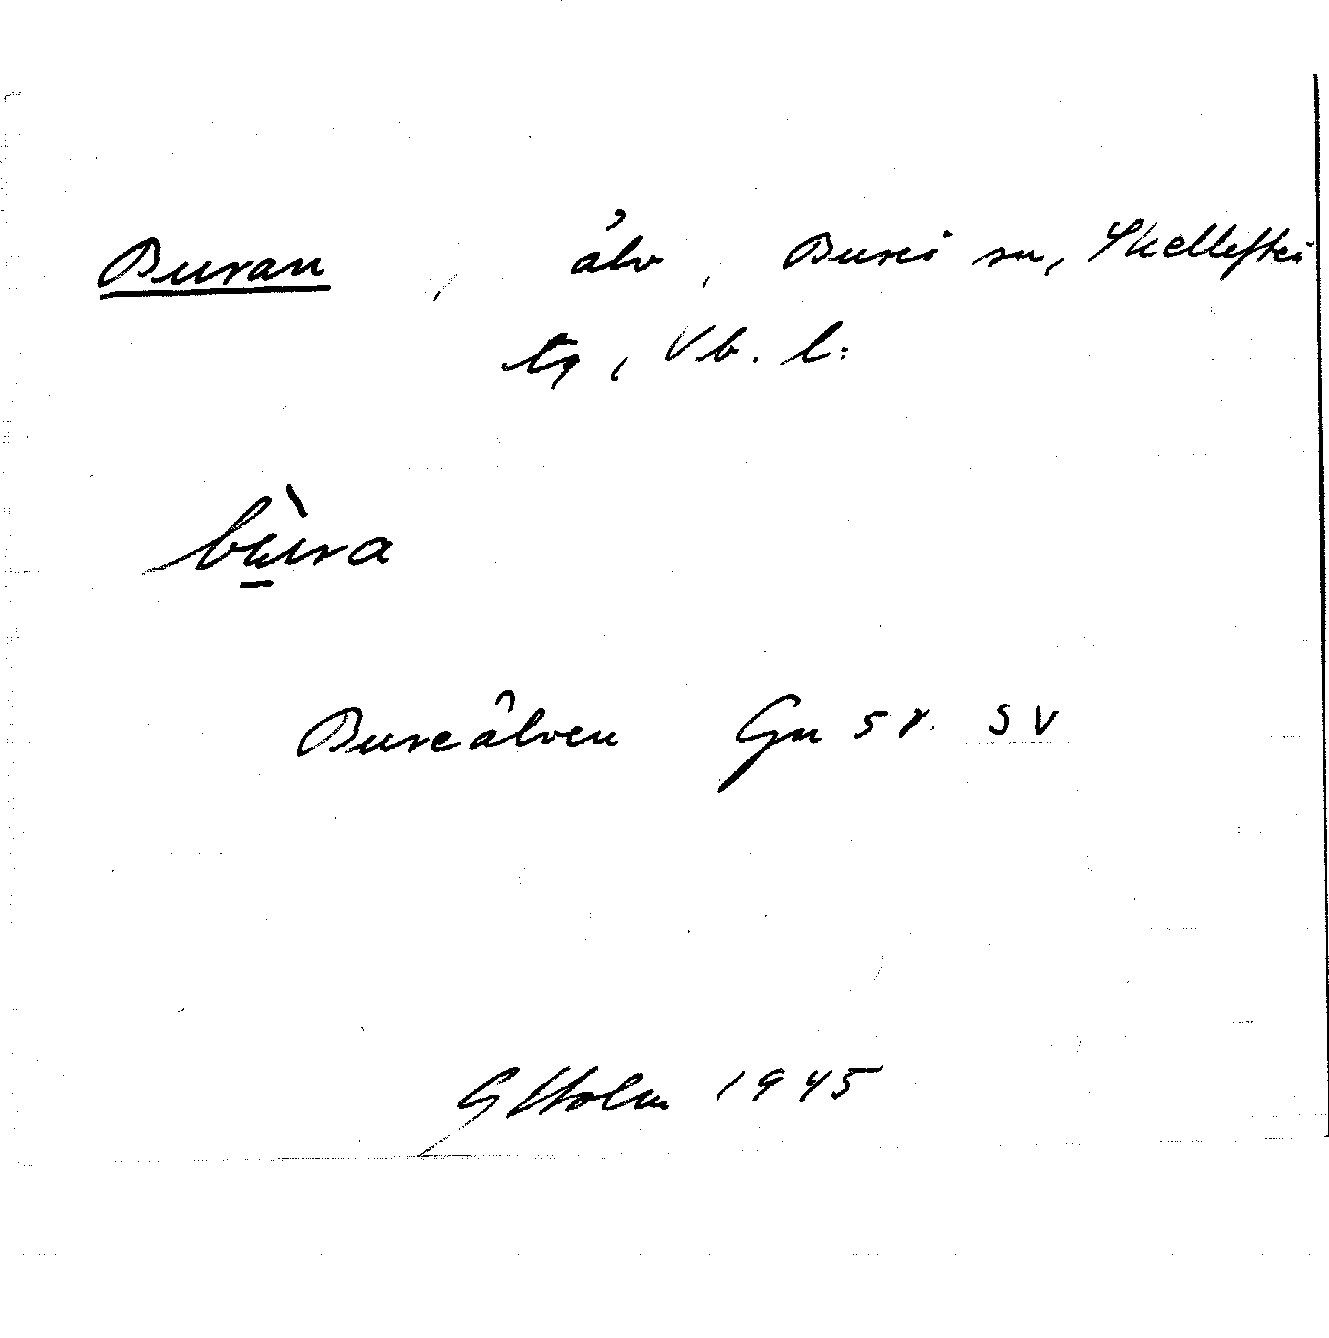 Buran, älv, Bureå sn, Skellefteå
tg, Vb. l.
bùra
Bureälven Gn 58 SV
G Holm 1945